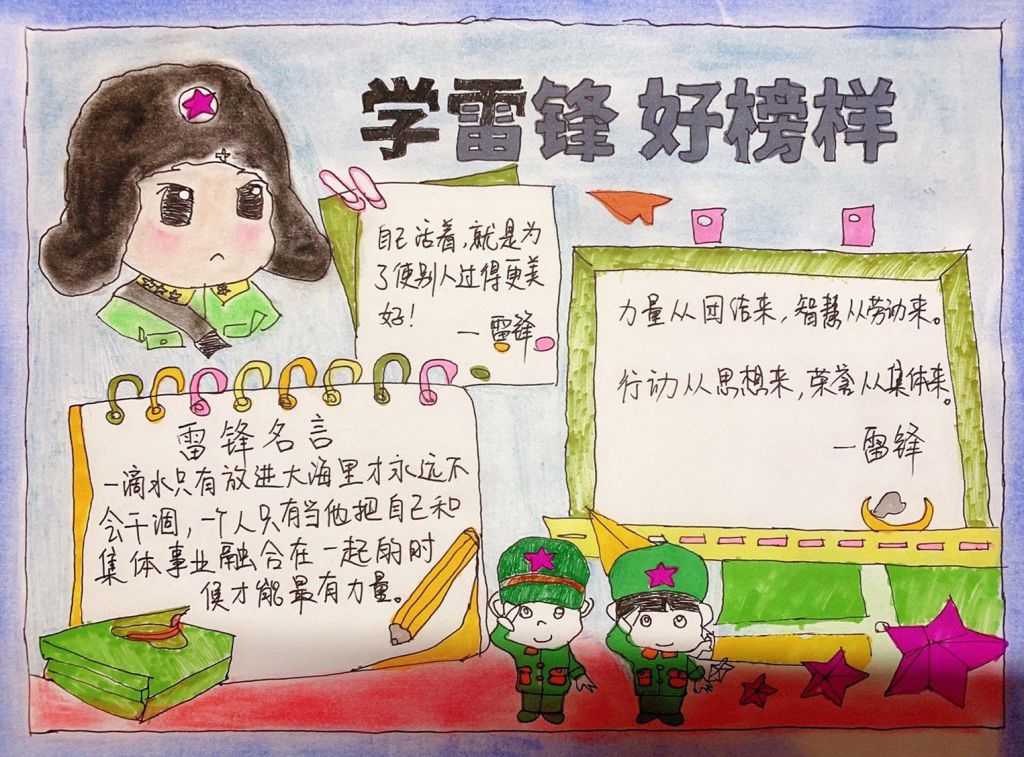 学雷锋 好榜样
自己活着，就是为
了使别人过得更美
好！
—雷锋
力量从团结来，智慧从劳动来。
行动从思想来，荣誉从集体来。
—雷锋
雷锋名言
一滴水只有放进大海里才永远不
会干涸，一个人只有当他把自己和
集体事业融合在一起的时
候才能最有力量。